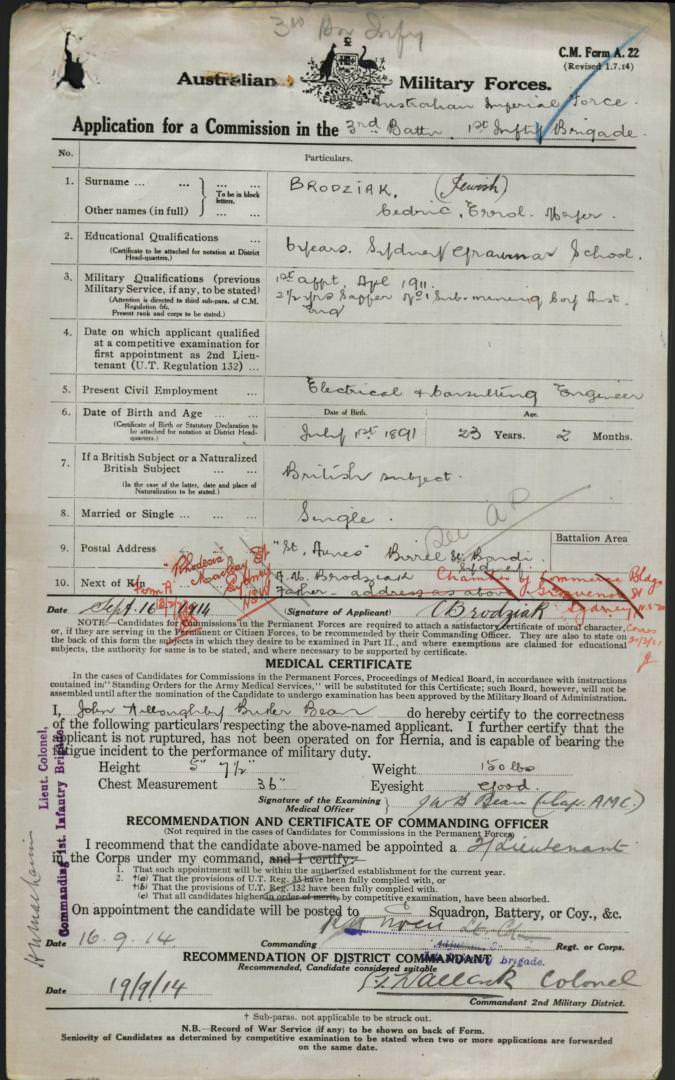 3rd Bn Infy
C.M. Form A. 22
(Revised 1.7.14)
Australian Military Forces.
Australian Imperial Force.
Application for a Commission in the 3rd Battn, 1st Inftry Brigade.
No. Particulars.
1. Surname ... ... ... ... BRODZIAK, (Jewish)
To be in block letters.
Other names (in full) ... ... Cedric, Errol. Meyer.
2. Educational Qualifications ... 6 years. Sydney Grammar School.
(Certificate to be attached for notation at District
Head-quarters.)
3. Military Qualifications (previous 1st appt. Apl 1911.
Military Service, if any, to be stated) 2½ yrs Sapper No 1 Sub-mining Coy Aust.
(Attention is directed to third sub-para. of C.M. Eng
Regulation 66.
Present rank and corps to be stated.)
4. Date on which applicant qualified
at a competitive examination for
first appointment as 2nd Lieu-
tenant (U.T. Regulation 132) ...
5. Present Civil Employment ... Electrical & Consulting Engineer
6. Date of Birth and Age ... ... Date of Birth. Age.
(Certificate of Birth or Statutory Declaration to
be attached for notation at District Head-
quarters.)
July 1st 1891 23 Years. 2 Months.
7. If a British Subject or a Naturalized
British Subject ... ... British subject.
(In the case of the latter, date and place of
Naturalization to be stated.)
8. Married or Single ... ... Single.
9. Postal Address "St. Agnes" Birrell St. Bondi. Battalion Area
Sydney
"Rhodesia"
Macleay St
Sydney
NSW
Form A
10. Next of Kin A. M. Brodziak Chamber of Commerce Bldgs
Father - address as above Grosvenor St
Sydney
Date Sept. 16 1914 (Signature of Applicant) C Brodziak
NOTE.—Candidates for Commissions in the Permanent Forces are required to attach a satisfactory certificate of moral character,
or, if they are serving in the Permanent or Citizen Forces, to be recommended by their Commanding Officer. They are also to state on
the back of this form the subjects in which they desire to be examined in Part II., and where exemptions are claimed for educational
subjects, the authority for same is to be stated, and where necessary to be supported by certificate.
MEDICAL CERTIFICATE
In the cases of Candidates for Commissions in the Permanent Forces, Proceedings of Medical Board, in accordance with instructions
contained in "Standing Orders for the Army Medical Services," will be substituted for this Certificate; such Board, however, will not be
assembled until after the nomination of the Candidate to undergo examination has been approved by the Military Board of Administration.
I, John Willoughby Butler Bean do hereby certify to the correctness
of the following particulars respecting the above-named applicant. I further certify that the
applicant is not ruptured, has not been operated on for Hernia, and is capable of bearing the
fatigue incident to the performance of military duty.
Height 5" 7½" Weight 150 lbs
Chest Measurement 36" Eyesight Good.
Signature of the Examining
Medical Officer J W B Bean (Cap. AMC.)
RECOMMENDATION AND CERTIFICATE OF COMMANDING OFFICER
(Not required in the cases of Candidates for Commissions in the Permanent Forces)
I recommend that the candidate above-named be appointed a 2/Lieutenant
in the Corps under my command, and I certify:—
1. That such appointment will be within the authorized establishment for the current year.
2. †(a) That the provisions of U.T. Reg. 33 have been fully complied with, or
†(b) That the provisions of U.T. Reg. 132 have been fully complied with.
(c) That all candidates higher in order of merit, by competitive examination, have been absorbed.
On appointment the candidate will be posted to Squadron, Battery, or Coy., &c.
Date 16.9.14 Commanding Regt. or Corps.
brigade.
Lieut. Colonel,
Commanding 1st. Infantry Brigade
RECOMMENDATION OF DISTRICT COMMANDANT
Recommended, Candidate considered suitable
Date 19/9/14 Wallack Colonel
Commandant 2nd Military District.
† Sub-paras. not applicable to be struck out.
N.B.—Record of War Service (if any) to be shown on back of Form.
Seniority of Candidates as determined by competitive examination to be stated when two or more applications are forwarded
on the same date.